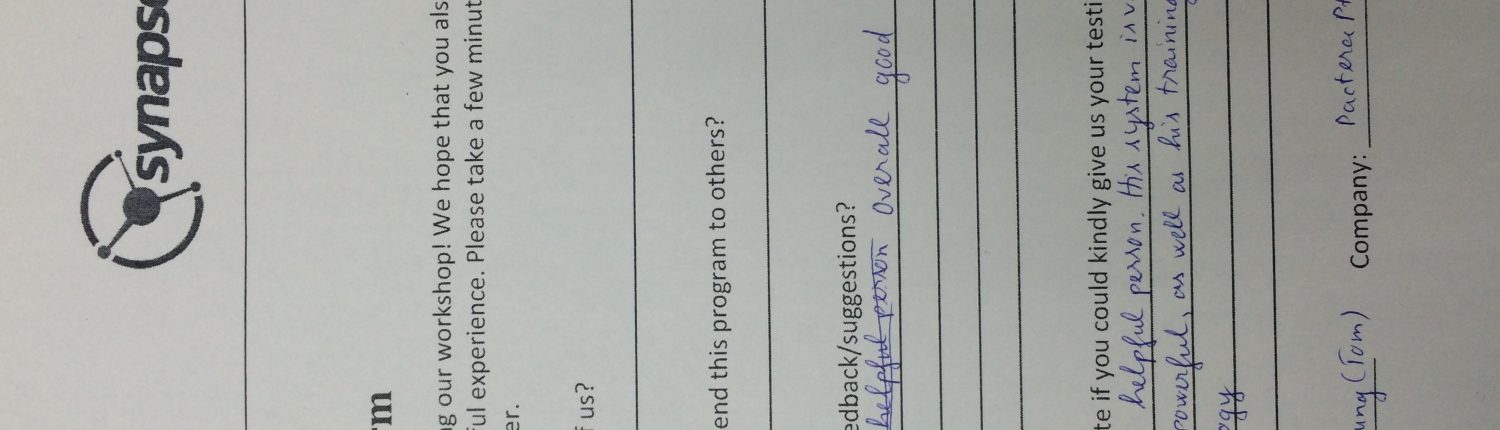 synapse
rm
ng our workshop! We hope that you als
ful experience. Please take a few minut
er.
f us?
end this program to others?
edback/suggestions?
helpful person overall good
te if you could kindly give us your testi
helpful person. His system is v
powerful, as well as his training
ogy
ung (Tom) Company: Pactera Pt